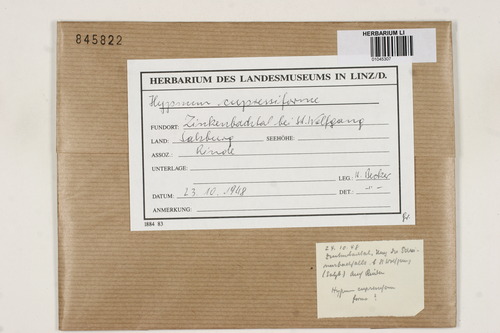 845822
HERBARIUM LI
01045307
HERBARIUM DES LANDESMUSEUMS IN LINZ/D.
Hypnum cupressiforme
FUNDORT: Zinkenbachtal bei St. Wolfgang
LAND: Salzburg SEEHÖHE:
ASSOZ.: Rinde
UNTERLAGE:
LEG.: H. Becker
DATUM: 23.10.1948 DET.: -"-
ANMERKUNG:
1884 83
24.10.48
Wolfgang
auf
Hypnum cupressiforme
forma ?